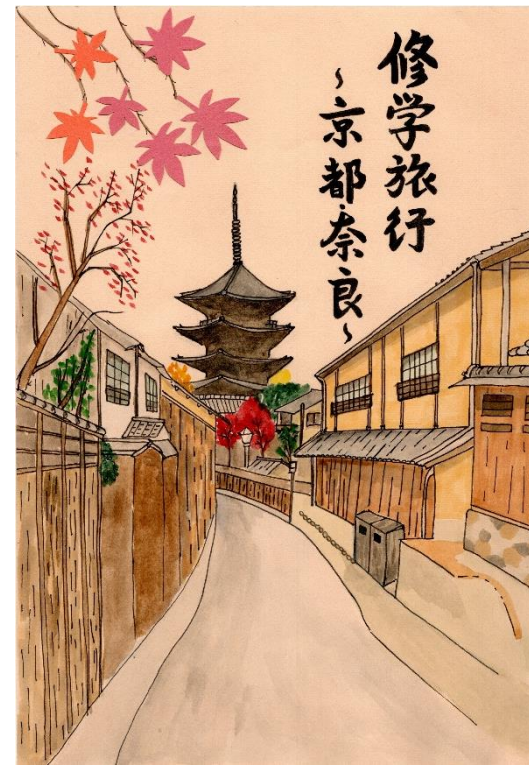 修学旅行
~京都・奈良~